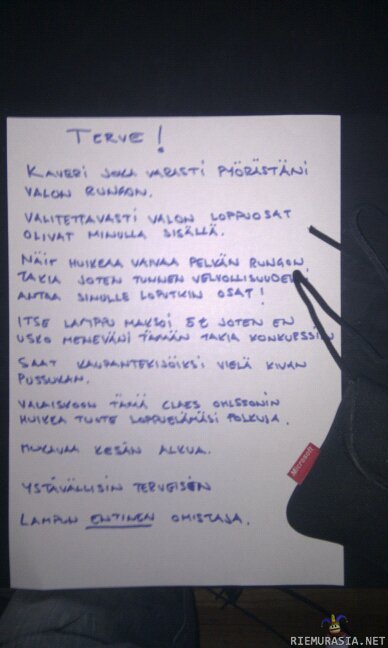 TERVE!
KAVERI JOKA VARASTI PYÖRÄSTÄNI
VALON RUNGON.
VALITETTAVASTI VALON LOPPUOSAT
OLIVAT MINULLA SISÄLLÄ.
NÄIT HUIKEAA VAIVAA PELKÄN RUNGON
TAKIA JOTEN TUNNEN VELVOLLISUUDEKSI
ANTAA SINULLE LOPUTKIN OSAT!
ITSE LAMPPU MAKSOI 5€ JOTEN EN
USKO MENEVÄNI TÄMÄN TAKIA KONKURSSIIN
SAAT KAUPANTEKIJÖIKSI VIELÄ KIVAN
PUSSUKAN.
VALAISKOON TÄMÄ CLAES OHLSSONIN
HUIKEA TUOTE LOPPUELÄMÄSI POLKUJA.
MUKAVAA KESÄN ALKUA.
YSTÄVÄLLISIN TERVEISIN
LAMPUN ENTINEN OMISTAJA.
Microsoft
RIEMURASIA.NET